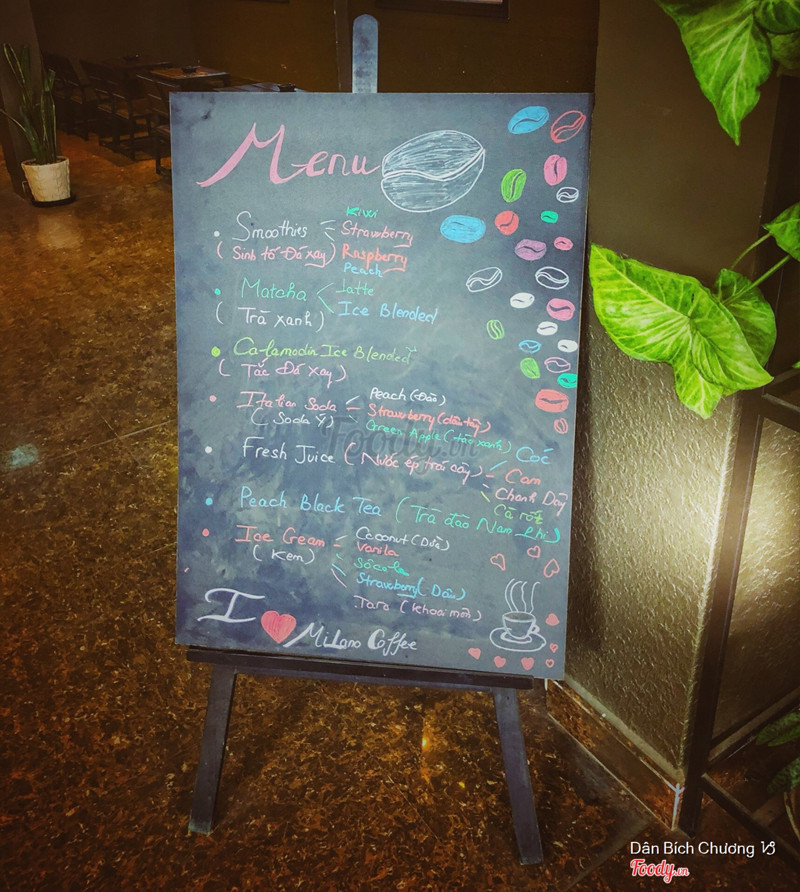 Menu
Kiwi
Smoothies Strawberry
(Sinh tố Đá xay) Raspberry
Peach
Matcha latte
(Trà xanh) Ice Blended
Calamodin Ice Blended
(Tắc Đá xay)
Italian Soda Peach (Đào)
(Soda Ý) Strawberry (dâu tây)
Green Apple (táo xanh)
Foody.vn
Fresh Juice (Nước ép trái cây) Cóc
Cam
Chanh Dây
Cà rốt
Peach Black Tea (Trà đào Nam Phi)
Ice Cream Coconut (Dừa)
(Kem) Vanila
Sôcôla
Strawberry (Dâu)
Taro (khoai môn)
I ❤ Milano Coffee
Dân Bích Chương
Foody.vn